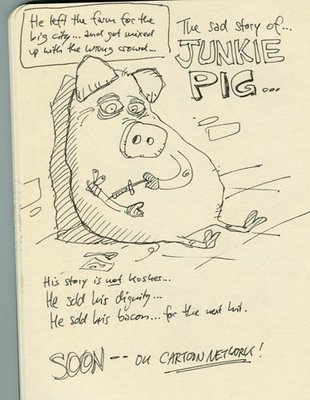 He left the farm for the
big city... and got mixed
up with the wrong crowd...
The sad story of...
JUNKIE
PIG...
His story is not kosher...
He sold his dignity...
He sold his bacon... for the next hit.
SOON -- on CARTOON NETWORK!